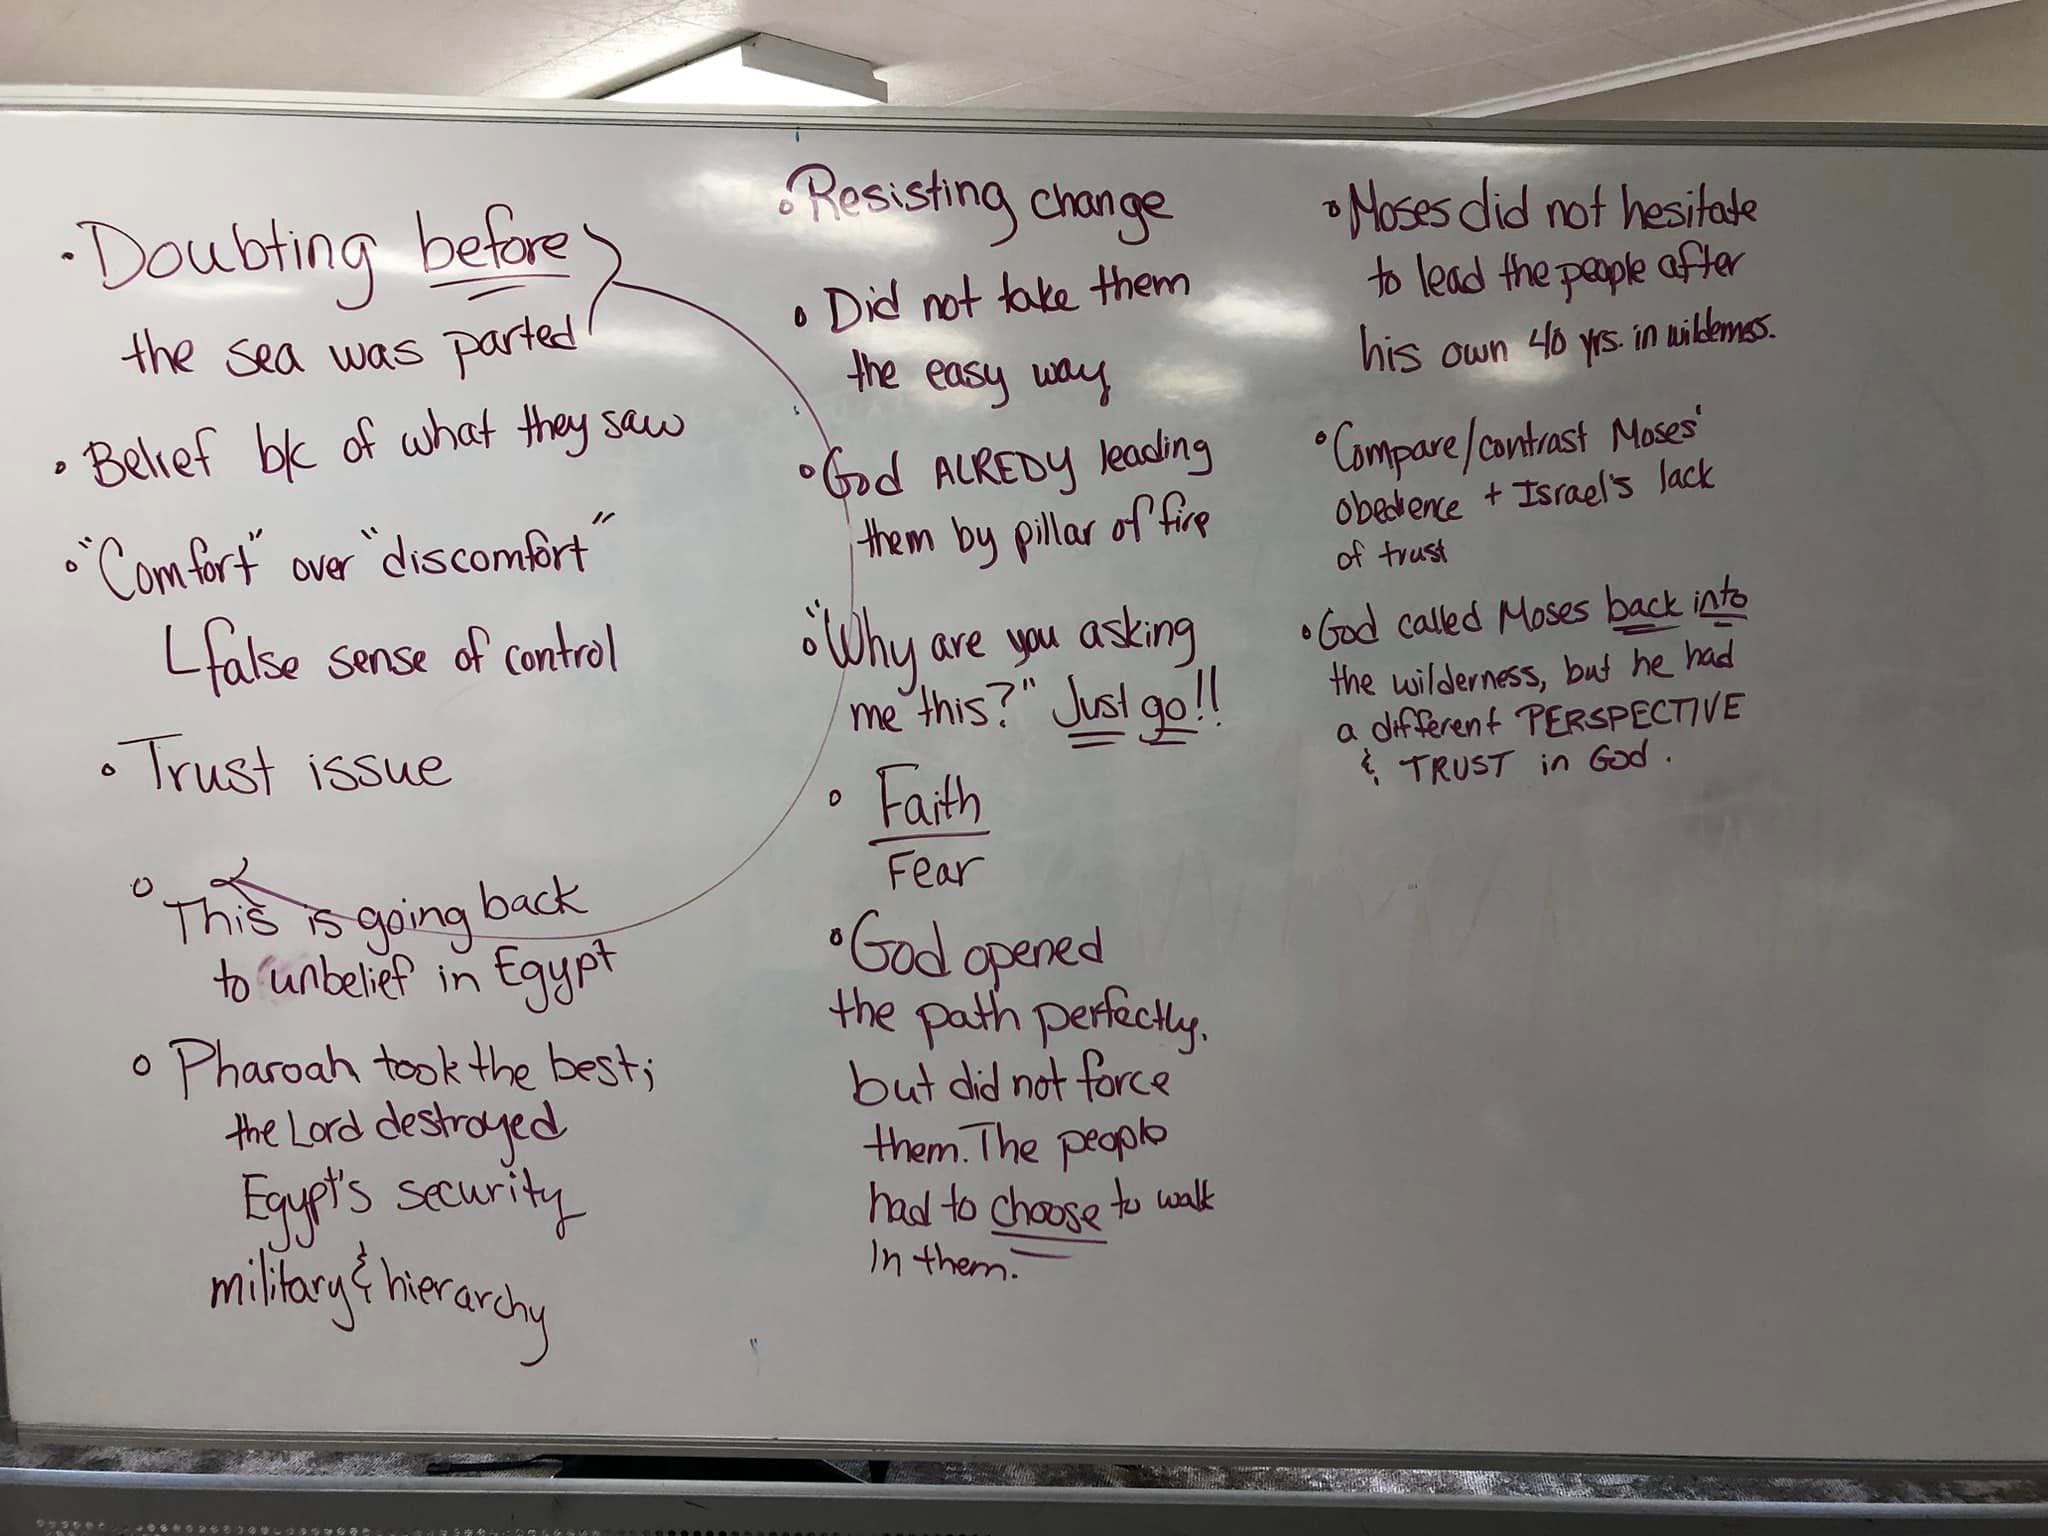 • Doubting before
the sea was parted
• Belief b/c of what they saw
• "Comfort" over "discomfort"
false sense of control
• Trust issue
• This is going back
to unbelief in Egypt
• Pharoah took the best;
the Lord destroyed
Egypt's security
military & hierarchy
• Resisting change
• Did not take them
the easy way
• God ALREDY leading
them by pillar of fire
• "Why are you asking
me this?" Just go!!
• Faith
Fear
• God opened
the path perfectly,
but did not force
them. The people
had to choose to walk
in them.
• Moses did not hesitate
to lead the people after
his own 40 yrs. in wilderness.
• Compare/contrast Moses'
obedience + Israel's lack
of trust
• God called Moses back into
the wilderness, but he had
a different PERSPECTIVE
& TRUST in God.